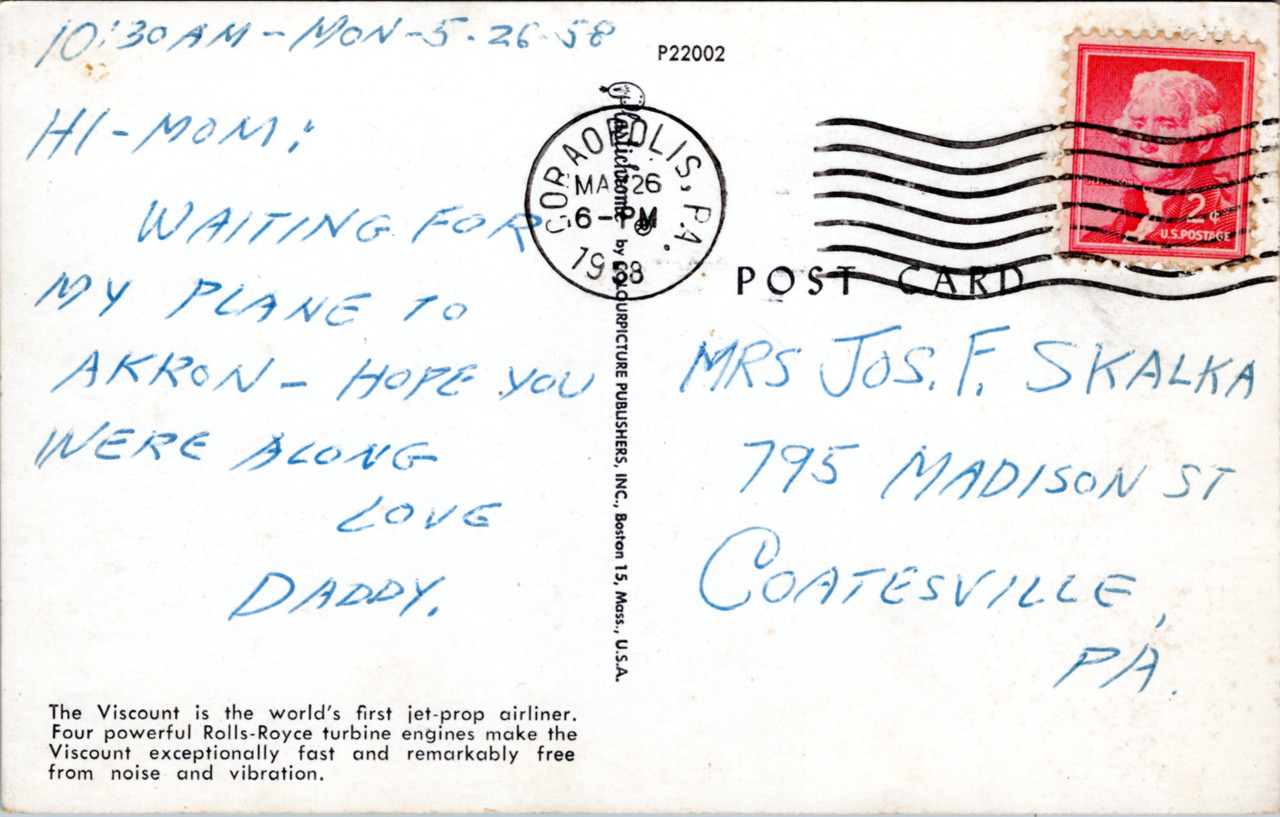 10:30 AM - MON - 5-26-58
HI - MOM:
WAITING FOR
MY PLANE TO
AKRON - HOPE YOU
WERE ALONG
LOVE
DADDY.
The Viscount is the world's first jet-prop airliner.
Four powerful Rolls-Royce turbine engines make the
Viscount exceptionally fast and remarkably free
from noise and vibration.
P22002
Plastichrome ® by COLOURPICTURE PUBLISHERS, INC., Boston 15, Mass., U.S.A.
CORAOPOLIS, PA.
MAY 26
6 - PM
1958
2¢
U.S. POSTAGE
POST CARD
MRS JOS. F. SKALKA
795 MADISON ST
COATESVILLE,
PA.